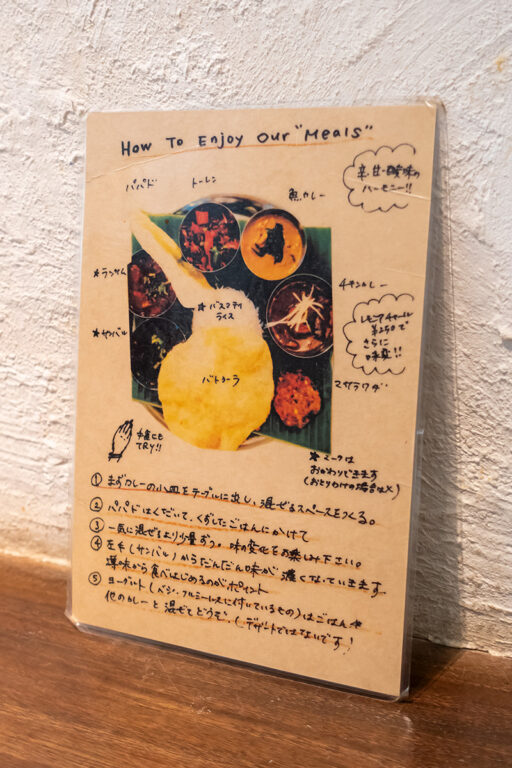 How To Enjoy Our "Meals"
辛・甘・酸味の
ハーモニー!!
パパド
トーレン
魚カレー
★ラッサム
★サンバル
★バスマティ
ライス
チキンカレー
レモンアチャール
¥250で
さらに
味変!!
バトゥーラ
マサラワダ
手食にも
TRY!!
★マークは
おかわりできます
(おとりわけの場合は×)
① まずカレーの小皿をテーブルに出し、混ぜるスペースをつくる。
② パパドはくだいて、くずしたごはんにかけて
③ 一気に混ぜるより少量ずつ。味変化をお楽しみ下さい。
④ 左手(サンバル)からだんだん味が濃くなっていきます
薄味から食べはじめるのがポイント
⑤ ヨーグルト(ベジ、フルミールスに付いているもの)はごはんや
他のカレーと混ぜてどうぞ。(デザートではないです!